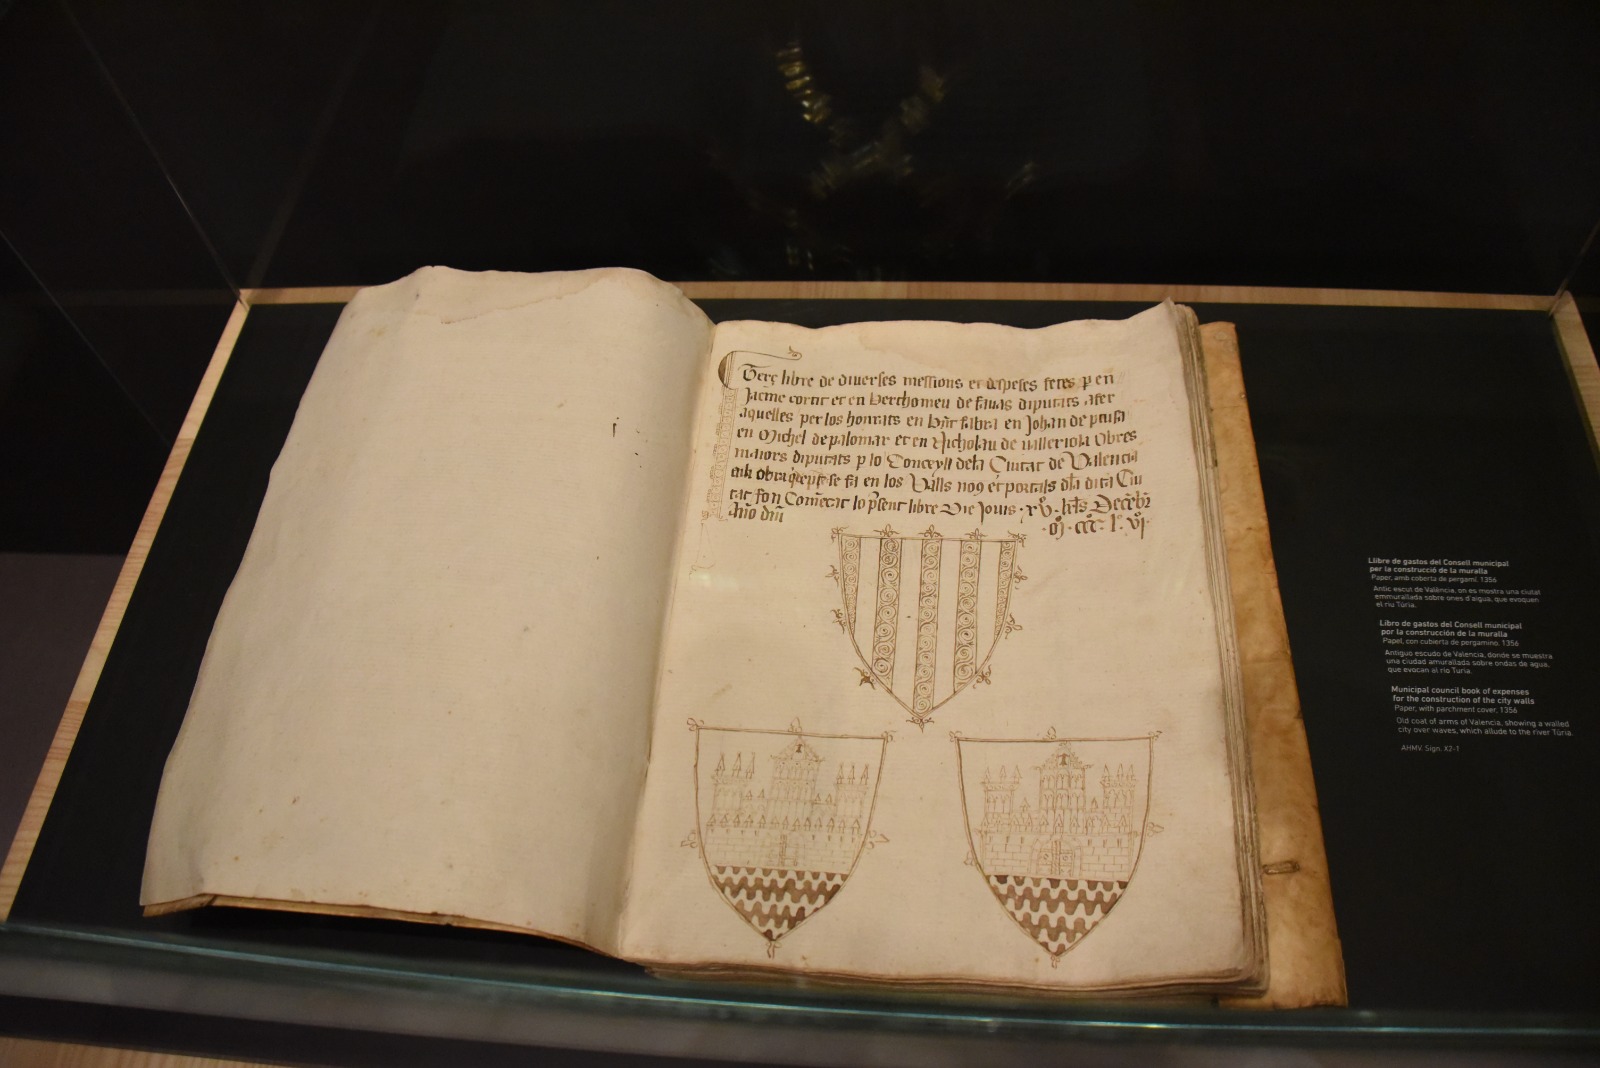 Terç libre de diuerses messions et despeses fetes p en
Jacme cortit et en Berthomeu de fauas diputats afer
aquelles per los honrats en fabra en Johan de
en Michel de palomar et en Nicholau de valleriola Obres
maiors diputats p lo Conceyll dela Ciutat de Valencia
obra se fa en los Valls nous et portals dla dita Ciu
tat fon Comēcat lo psent libre Die Jouis
Año dñi
Llibre de gastos del Consell municipal
per la construcció de la muralla
Paper, amb coberta de pergamí, 1356
Antic escut de València, on es mostra una ciutat
emmurallada sobre ones d'aigua, que evoquen
el riu Túria.
Libro de gastos del Consell municipal
por la construcción de la muralla
Papel, con cubierta de pergamino, 1356
Antiguo escudo de Valencia, donde se muestra
una ciudad amurallada sobre ondas de agua,
que evocan al río Turia.
Municipal council book of expenses
for the construction of the city walls
Paper, with parchment cover, 1356
Old coat of arms of Valencia, showing a walled
city over waves, which allude to the river Túria.
AHMV. Sign. X2-1